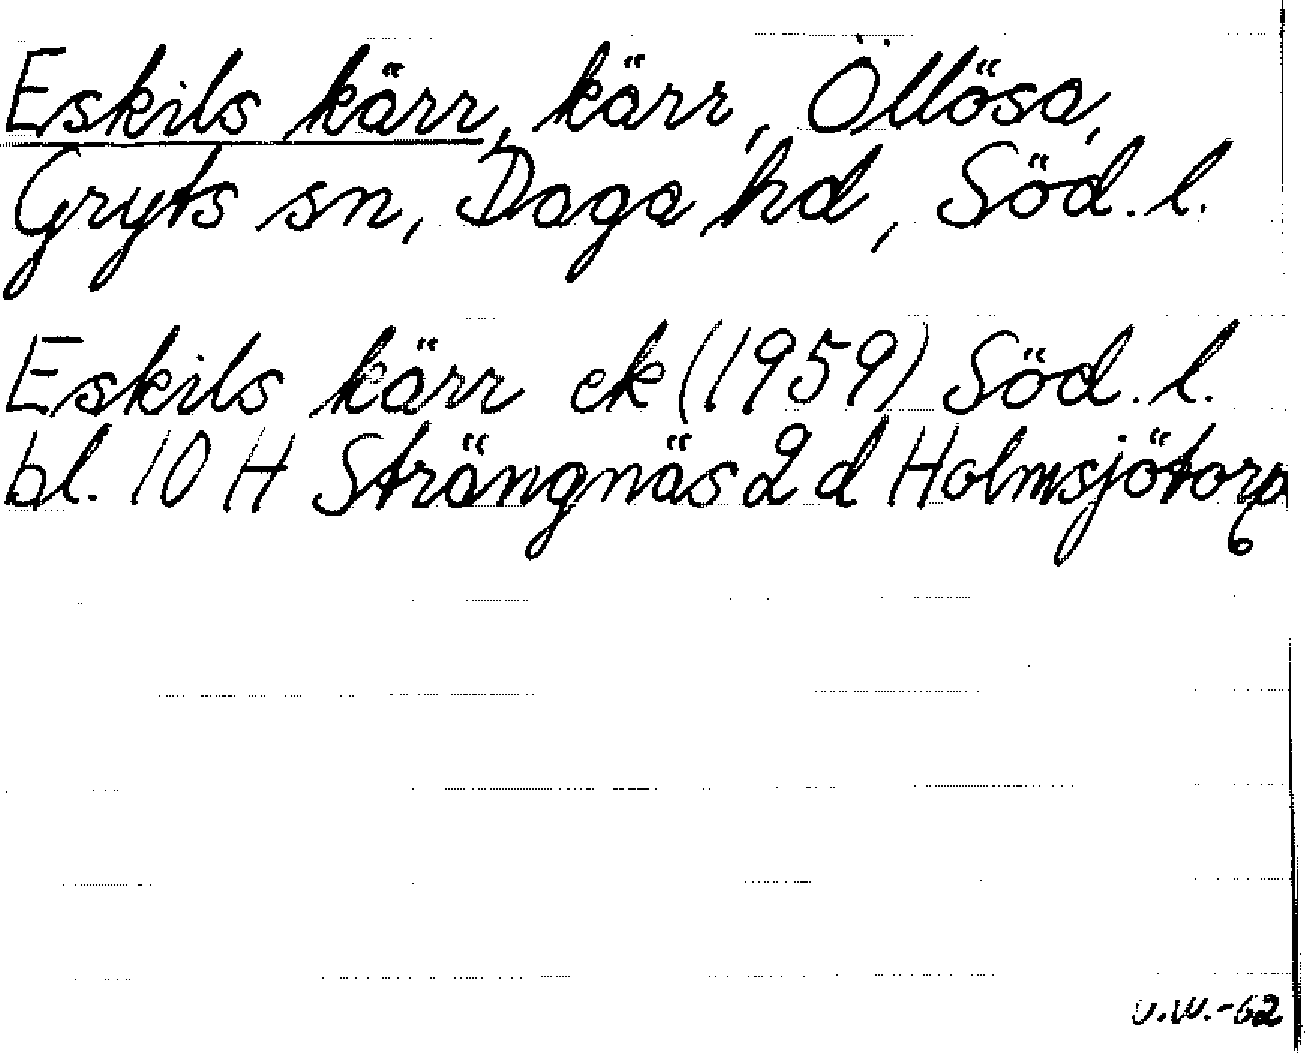 Eskils kärr, kärr, Öllösa,
Gryts sn, Daga hd, Söd. l.
Eskils kärr ek (1959) Söd. l.
bl. 10 H Strängnäs 2 d Holmsjötorp
v.W.-62